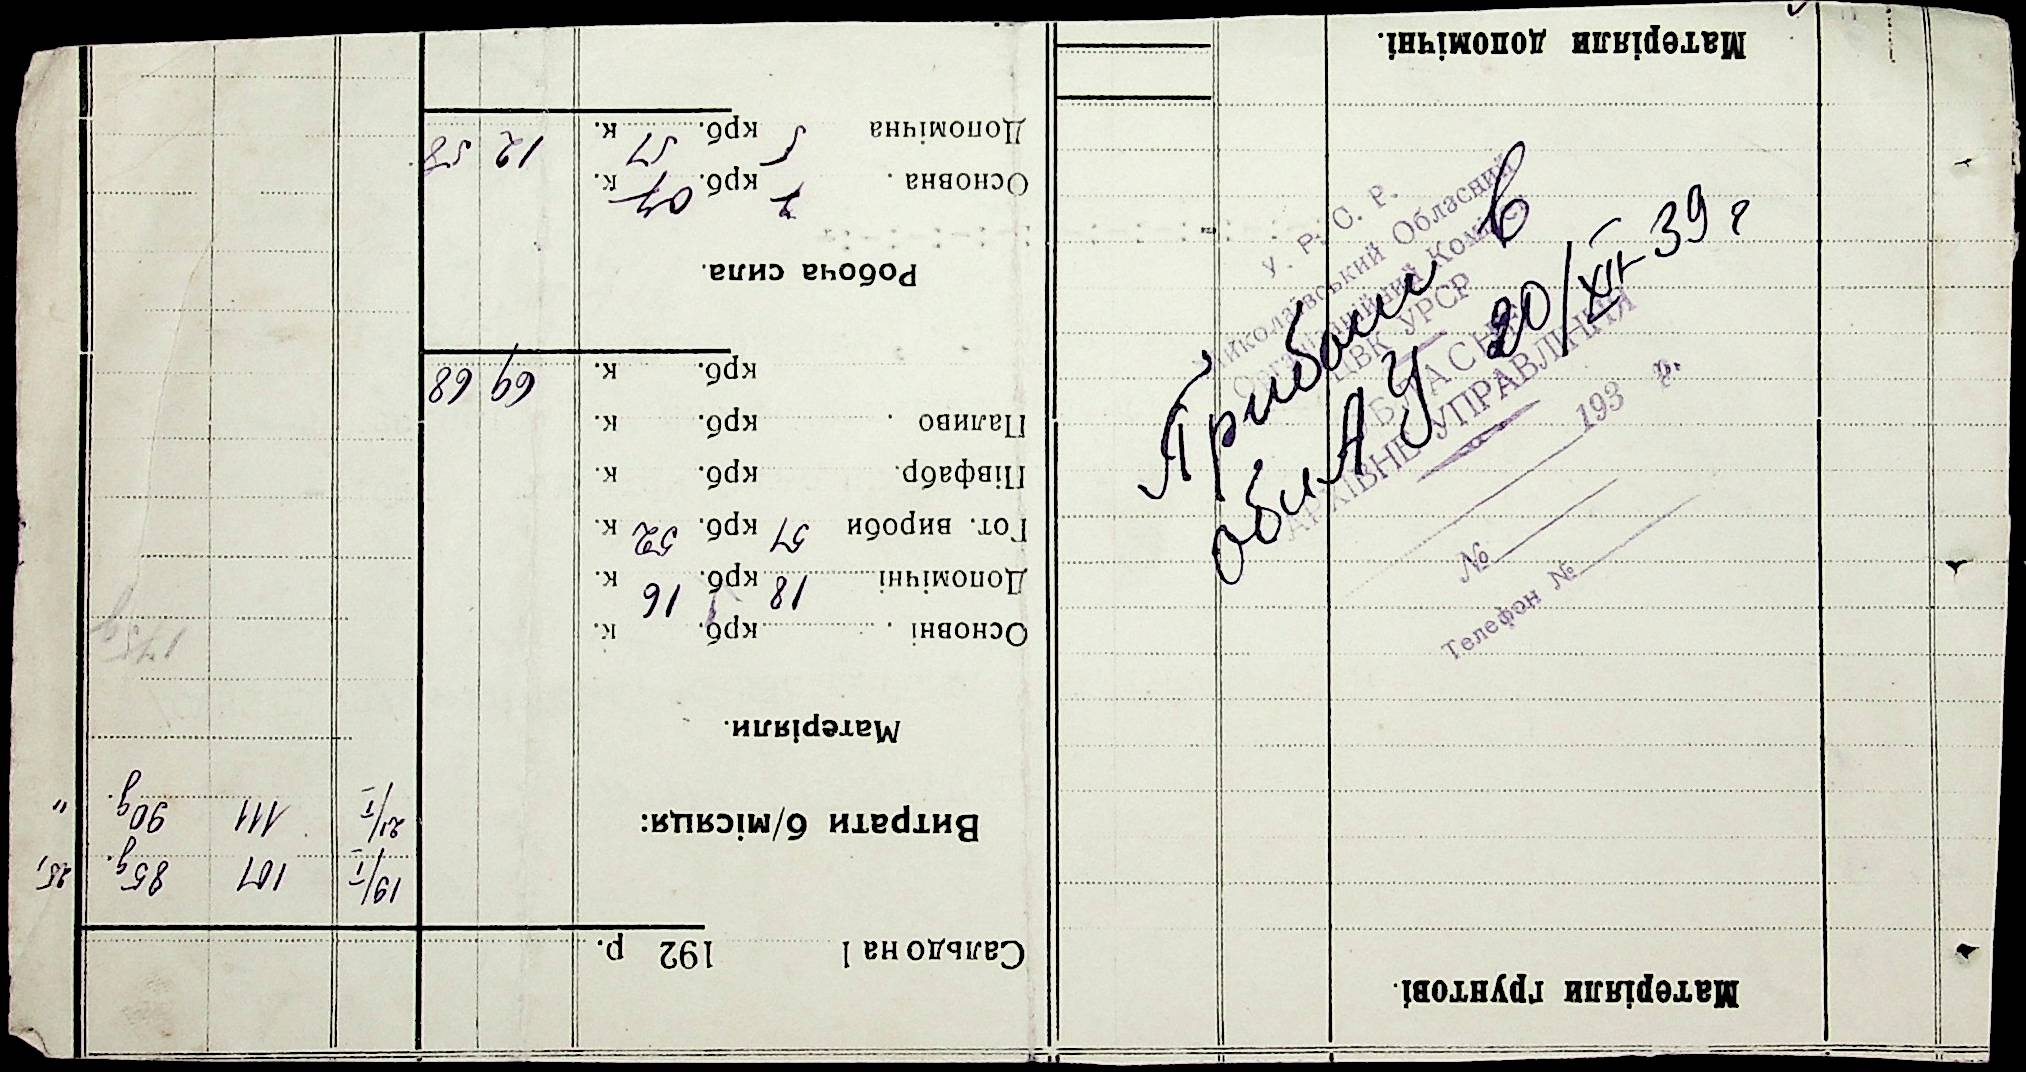 Матеріяли грунтові.
Матеріяли допомічні.
Сальдо на 1 192 р.
Витрати б/місяця:
Матеріяли.
Основні . крб. к.
Допомічні 18 крб. 16 к.
Гот. вироби 51 крб. 52 к.
Півфабр. крб. к.
Паливо . крб. к.
крб. к. 69 68
Робоча сила.
Основна . 7 крб. 07 к.
Допомічна 5 крб. 51 к. 12 58
19/I 107 85д.
21/I 111 90д. "
У. Р. С. Р.
Миколаївський Обласний
Організаційний Комітет
ЦВК УРСР
ОБЛАСНЕ
АРХІВНЕ УПРАВЛІННЯ
193 р.
№
Телефон №
в
облАУ 20/XII-39 г